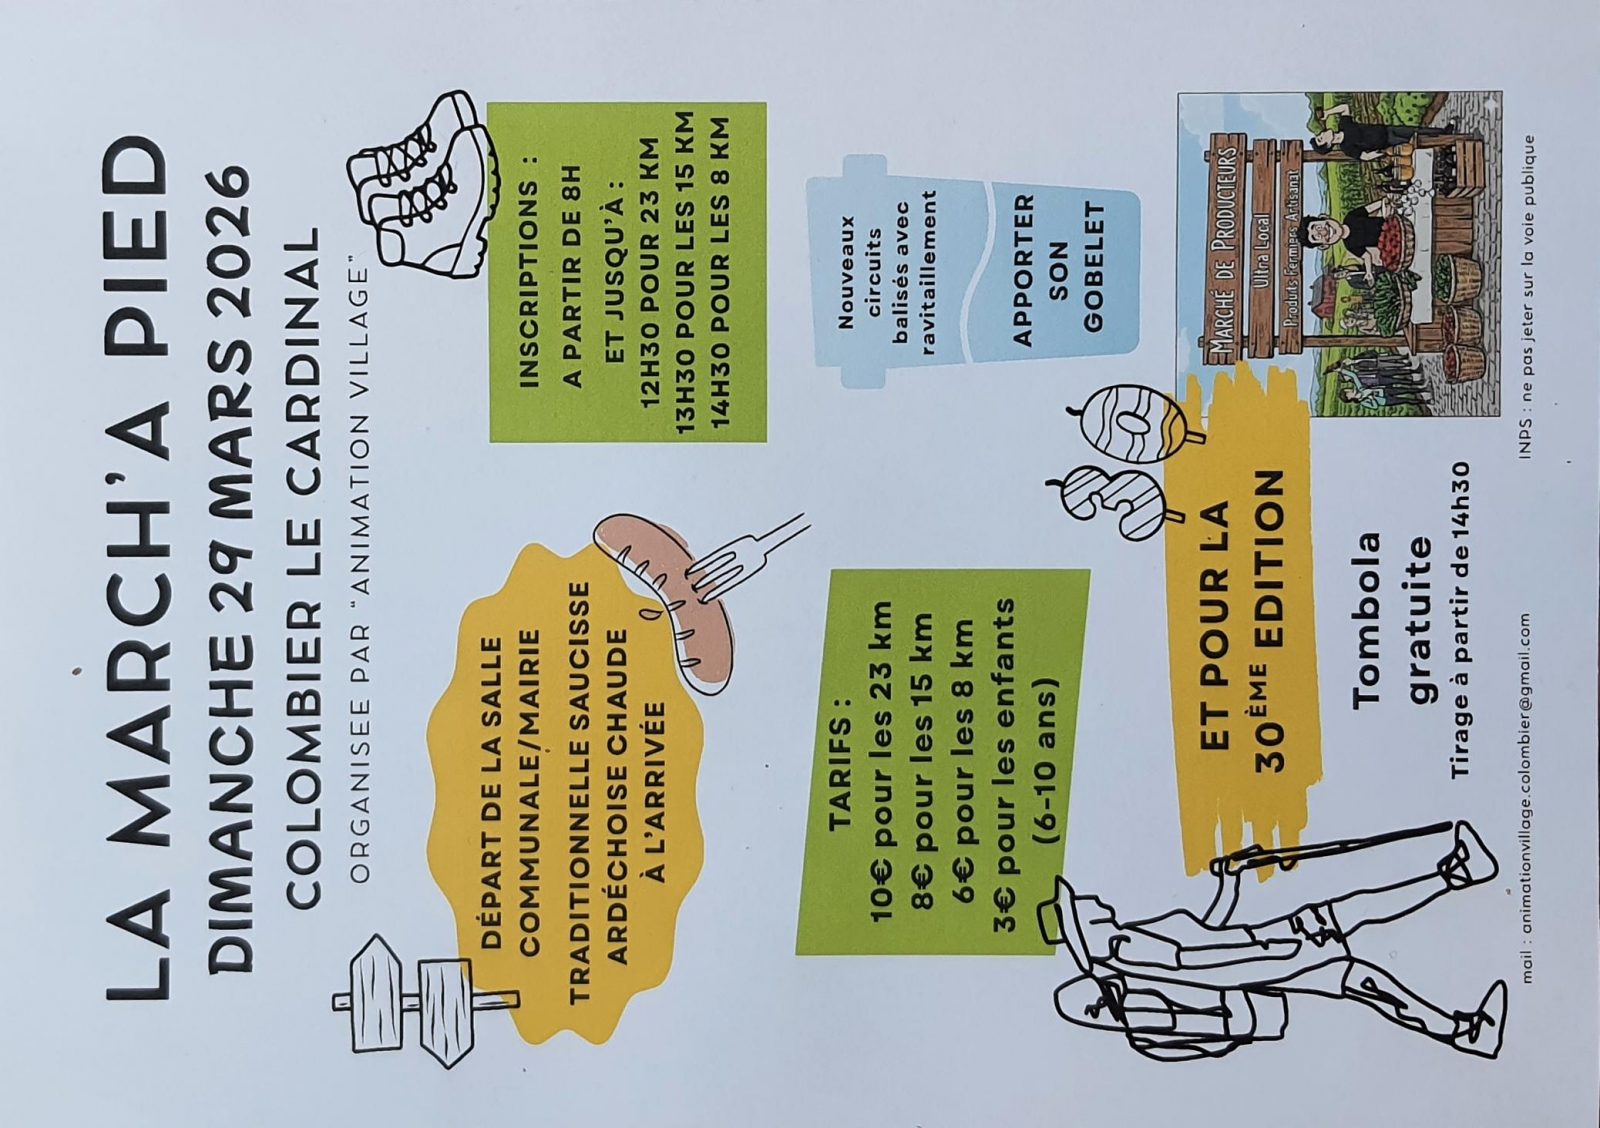 LA MARCH'A PIED
DIMANCHE 29 MARS 2026
COLOMBIER LE CARDINAL
ORGANISEE PAR "ANIMATION VILLAGE"
DÉPART DE LA SALLE
COMMUNALE/MAIRIE
TRADITIONNELLE SAUCISSE
ARDÉCHOISE CHAUDE
À L'ARRIVÉE
INSCRIPTIONS :
A PARTIR DE 8H
ET JUSQU'À :
12H30 POUR 23 KM
13H30 POUR LES 15 KM
14H30 POUR LES 8 KM
TARIFS :
10€ pour les 23 km
8€ pour les 15 km
6€ pour les 8 km
3€ pour les enfants
(6-10 ans)
Nouveaux
circuits
balisés avec
ravitaillement
APPORTER
SON
GOBELET
30
ET POUR LA
30ÈME EDITION
MARCHÉ DE PRODUCTEURS
Ultra Local
Produits Fermiers Artisanat
Tombola
gratuite
Tirage à partir de 14h30
mail : animationvillage.colombier@gmail.com
INPS : ne pas jeter sur la voie publique